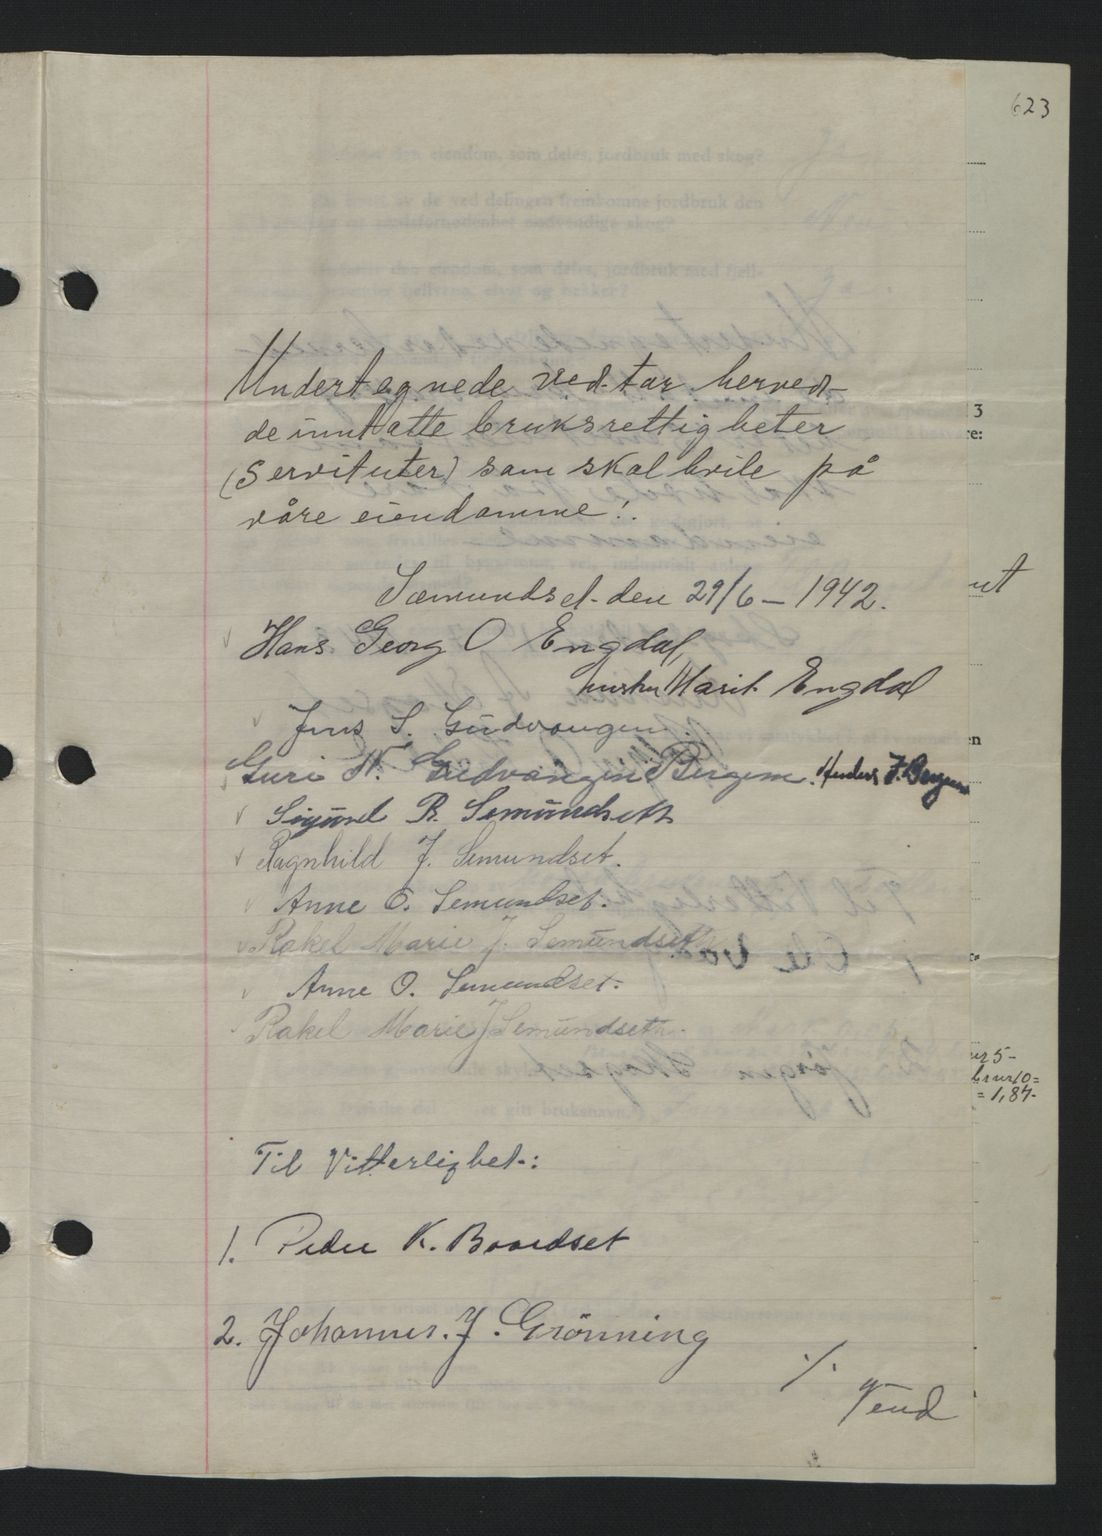 623
Undertegnede ved-tar herved-
de inntatte bruksrettigheter
(Servituter) som skal hvile på
våre eiendomme!.
Sæmundset den 29/6 – 1942.
Hans Georg O Engdal,
hustru Marit Engdal
Jens S. Gudvangen.
Guri Gudvangen Bergem. Anders J. Bergem
Sigurd R. Semundseth
Ragnhild J. Semundset.
Anne O. Semundset.
Rakel Marie J. Semundseth
Anne O. Semundset.
Rakel Marie J Semundseth.
Til Vitterlighet:
1. Peder K. Boordset
2. Johannes. J. Grönning
./.
Vend
3
re:
en
nr 5-
br nr 10=
= 1,84-